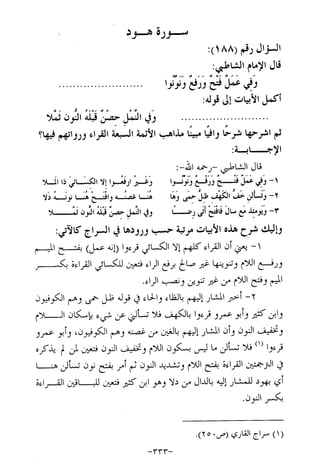 سورة هود
السؤال رقم (١٨٨):
قال الإمام الشاطبي:
وفي عمل فتح ورفع ونونوا ..........................
أكمل الأبيات إلى قوله:
.......................... وفي النمل حصن قبله النون ثملا
ثم اشرحها شرحًا وافيًا مبينًا مذاهب الأئمة السبعة القراء ورواتهم فيها؟
الإجـــابـــة:
قال الشاطبي -رحمه الله-:
١- وفي عمل فتح ورفع ونونوا وغير ارفعوا إلا الكسائي ذا الملا
٢- وتسألن خف الكهف ظل حمى وها هنا غصنه وافتح هنا نونه دلا
٣- ويومئذ مع سال فافتح أتى رضا وفي النمل حصن قبله النون ثملا
وإليك شرح هذه الأبيات مرتبة حسب ورودها في السراج كالآتي:
١- يعني أن القراء كلهم إلا الكسائي قرءوا (إنه عمل) بفتح الميم
ورفع اللام وتنوينها غير صالح برفع الراء فتعين للكسائي القراءة بكسر
الميم وفتح اللام من غير تنوين ونصب الراء.
٢- أخبر المشار إليهم بالظاء والحاء في قوله ظل حمى وهم الكوفيون
وابن كثير وأبو عمرو قرءوا بالكهف فلا تسألني عن شيء بإسكان اللام
وتخفيف النون وأن المشار إليهم بالغين من غصنه وهم الكوفيون، وأبو عمرو
قرءوا (١) فلا تسألن ما ليس بسكون اللام وتخفيف النون فتعين لمن لم يذكره
في الترجمتين القراءة بفتح اللام وتشديد النون ثم أمر بفتح نون تسألن هنا
أي بهود للمشار إليه بالدال من دلا وهو ابن كثير فتعين للباقين القراءة
بكسر النون.
(١) سراج القاري (ص٢٥٠).
-٣٣٣-